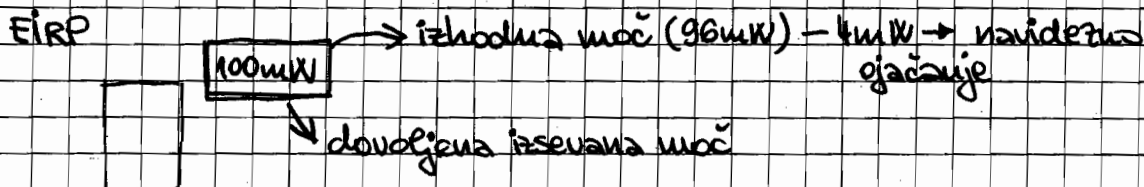 EIRP
100mW → izhodna moč (96mW) – 4mW → navidezno
ojačanje
↘ dovoljena izsevana moč